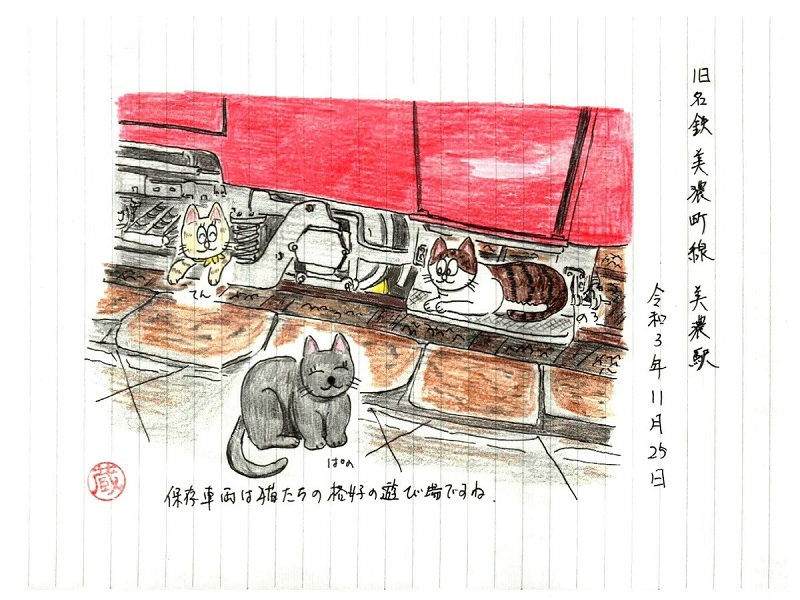 旧名鉄美濃町線 美濃駅
令和3年11月25日
てん
のろ
ぱの
保存車両は猫たちの格好の遊び場ですね.
蔵